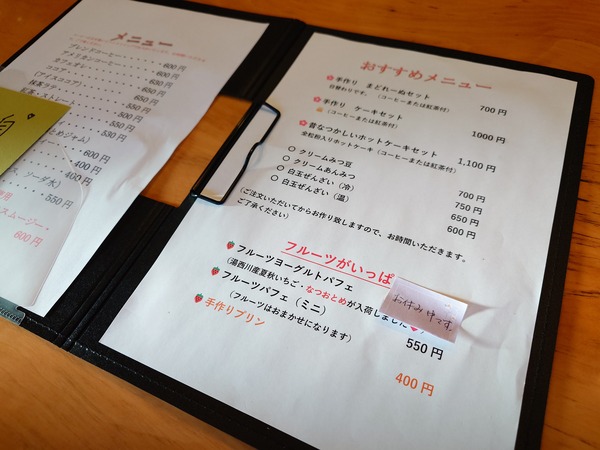 メニュー
ブレンドコーヒー・・・・・・・・600円
アメリカンコーヒー・・・・・・600円
カフェオレ・・・・・・・・・650円
ココア・・・・・・・・・・・650円
（アイスココア）・・・・・・650円
抹茶ラテ・・・・・・・・・・650円
紅茶・ストレート・・・・・・550円
550円
550円
とめジャム）
600円
ダー・・・・・・400円
400円
ス、ソーダ水）
・・・・550円
使用
スムージー・
600円
おすすめメニュー
手作り まどれーぬセット
日替わりです。（コーヒーまたは紅茶付） 700円
手作り ケーキセット
（コーヒーまたは紅茶付） 1000円
昔なつかしいホットケーキセット
全粒粉入りホットケーキ（コーヒーまたは紅茶付） 1,100円
○ クリームみつ豆 700円
○ クリームあんみつ 750円
○ 白玉ぜんざい（冷） 650円
○ 白玉ぜんざい（温） 600円
（ご注文いただいてからお作り致しますので、お時間いただきます。
ご了承ください）
フルーツがいっぱ
フルーツヨーグルトパフェ
（湯西川産夏秋いちご・なつおとめが入荷しました
お休み中です。
フルーツパフェ（ミニ） 550円
（フルーツはおまかせになります）
手作りプリン 400円